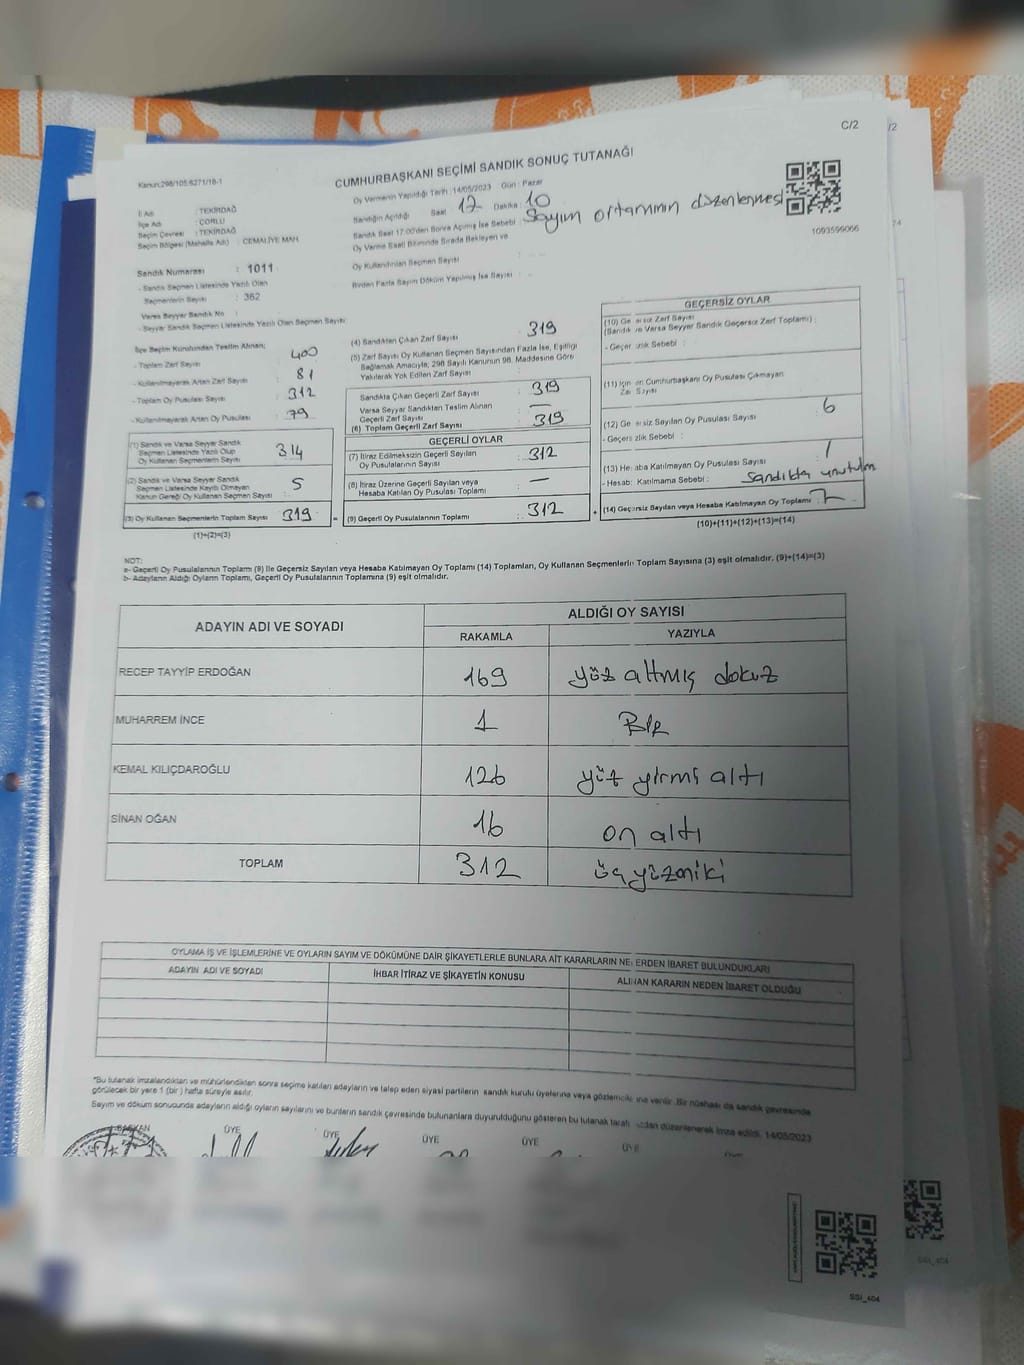 C/2
/2
Kanun;298/105;6271/18-1
CUMHURBAŞKANI SEÇİMİ SANDIK SONUÇ TUTANAĞI
Oy Vermenin Yapıldığı Tarih : 14/05/2023 Gün : Pazar
İl Adı : TEKİRDAĞ
İlçe Adı : ÇORLU
Seçim Çevresi : TEKİRDAĞ
Seçim Bölgesi (Mahalle Adı) : CEMALİYE MAH.
Sandığın Açıldığı Saat 17 Dakika : 10
Sandık Saat 17:00'den Sonra Açılmış İse Sebebi : Sayım ortamının düzenlenmesi
Oy Verme Saati Bitiminde Sırada Bekleyen ve
Oy Kullandırılan Seçmen Sayısı
Birden Fazla Sayım Döküm Yapılmış İse Sayısı
1093599066
74
Sandık Numarası : 1011
- Sandık Seçmen Listesinde Yazılı Olan
Seçmenlerin Sayısı : 362
Varsa Seyyar Sandık No
- Seyyar Sandık Seçmen Listesinde Yazılı Olan Seçmen Sayısı:
İlçe Seçim Kurulundan Teslim Alınan;
- Toplam Zarf Sayısı 400
- Kullanılmayarak Artan Zarf Sayısı 81
- Toplam Oy Pusulası Sayısı 312
- Kullanılmayarak Artan Oy Pusulası 79
(1) Sandık ve Varsa Seyyar Sandık
Seçmen Listesinde Yazılı Olup
Oy Kullanan Seçmenlerin Sayısı 314
(2) Sandık ve Varsa Seyyar Sandık
Seçmen Listesinde Kayıtlı Olmayan
Kanun Gereği Oy Kullanan Seçmen Sayısı : 5
(3) Oy Kullanan Seçmenlerin Toplam Sayısı 319
(1)+(2)=(3)
(4) Sandıktan Çıkan Zarf Sayısı : 319
(5) Zarf Sayısı Oy Kullanan Seçmen Sayısından Fazla İse, Eşitliği
Sağlamak Amacıyla, 298 Sayılı Kanunun 98. Maddesine Göre
Yakılarak Yok Edilen Zarf Sayısı
Sandıkta Çıkan Geçerli Zarf Sayısı : 319
Varsa Seyyar Sandıktan Teslim Alınan
Geçerli Zarf Sayısı : —
(6) Toplam Geçerli Zarf Sayısı : 319
GEÇERLİ OYLAR
(7) İtiraz Edilmeksizin Geçerli Sayılan
Oy Pusulalarının Sayısı : 312
(8) İtiraz Üzerine Geçerli Sayılan veya
Hesaba Katılan Oy Pusulası Toplamı : —
(9) Geçerli Oy Pusulalarının Toplamı : 312
GEÇERSİZ OYLAR
(10) Geçersiz Zarf Sayısı
(Sandık ve Varsa Seyyar Sandık Geçersiz Zarf Toplamı) :
- Geçersizlik Sebebi :
(11) İçinden Cumhurbaşkanı Oy Pusulası Çıkmayan
Zarf Sayısı
(12) Geçersiz Sayılan Oy Pusulası Sayısı : 6
- Geçersizlik Sebebi :
(13) Hesaba Katılmayan Oy Pusulası Sayısı : 1
- Hesaba Katılmama Sebebi : Sandıkta unutulan
(14) Geçersiz Sayılan veya Hesaba Katılmayan Oy Toplamı : 7
(10)+(11)+(12)+(13)=(14)
NOT:
a- Geçerli Oy Pusulalarının Toplamı (9) ile Geçersiz Sayılan veya Hesaba Katılmayan Oy Toplamı (14) Toplamları, Oy Kullanan Seçmenlerin Toplam Sayısına (3) eşit olmalıdır. (9)+(14)=(3)
b- Adayların Aldığı Oyların Toplamı, Geçerli Oy Pusulalarının Toplamına (9) eşit olmalıdır.
ADAYIN ADI VE SOYADI ALDIĞI OY SAYISI
RAKAMLA YAZIYLA
RECEP TAYYİP ERDOĞAN 169 yüz altmış dokuz
MUHARREM İNCE 1 BİR
KEMAL KILIÇDAROĞLU 126 yüz yirmi altı
SİNAN OĞAN 16 on altı
TOPLAM 312 üçyüzoniki
OYLAMA İŞ VE İŞLEMLERİNE VE OYLARIN SAYIM VE DÖKÜMÜNE DAİR ŞİKAYETLERLE BUNLARA AİT KARARLARIN NELERDEN İBARET BULUNDUKLARI
ADAYIN ADI VE SOYADI İHBAR İTİRAZ VE ŞİKAYETİN KONUSU ALINAN KARARIN NEDEN İBARET OLDUĞU
*Bu tutanak imzalandıktan ve mühürlendikten sonra seçime katılan adayların ve talep eden siyasi partilerin sandık kurulu üyelerine veya gözlemcilerine verilir. Bir nüshası da sandık çevresinde
görülecek bir yere 1 (bir) hafta süreyle asılır.
Sayım ve döküm sonucunda adayların aldığı oyların sayılarını ve bunların sandık çevresinde bulunanlara duyurulduğunu gösteren bu tutanak tarafımızdan düzenlenerek imza edildi. 14/05/2023
BAŞKAN ÜYE ÜYE ÜYE ÜYE ÜYE
SSİ_404
SSİ_404